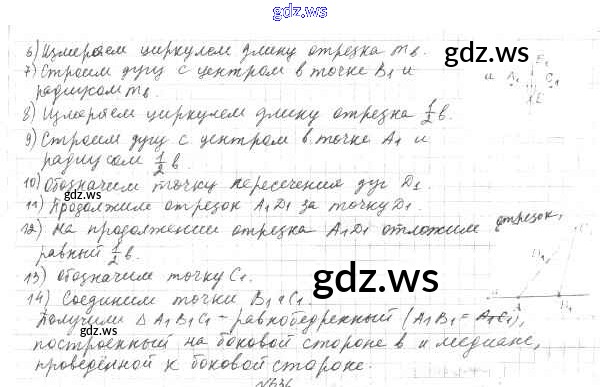 gdz.ws
6) Измеряем циркулем длину отрезка m_в.
7) Строим дугу с центром в точке B₁ и
радиусом m_в.
8) Измеряем циркулем длину отрезка 1/2 в.
9) Строим дугу с центром в точке A₁ и
радиусом 1/2 в.
10) Обозначим точку пересечения дуг D₁.
11) Продолжим отрезок A₁D₁ за точку D₁.
12) На продолжении отрезка A₁D₁ отложим отрезок,
равный 1/2 в.
13) Обозначим точку C₁.
14) Соединим точки B₁ и C₁.
Получили Δ A₁B₁C₁ - равнобедренный (A₁B₁ = A₁C₁),
построенный на боковой стороне в и медиане,
проведённой к боковой стороне.
№636
gdz.ws
gdz.ws
gdz.ws
gdz.ws
gdz.ws